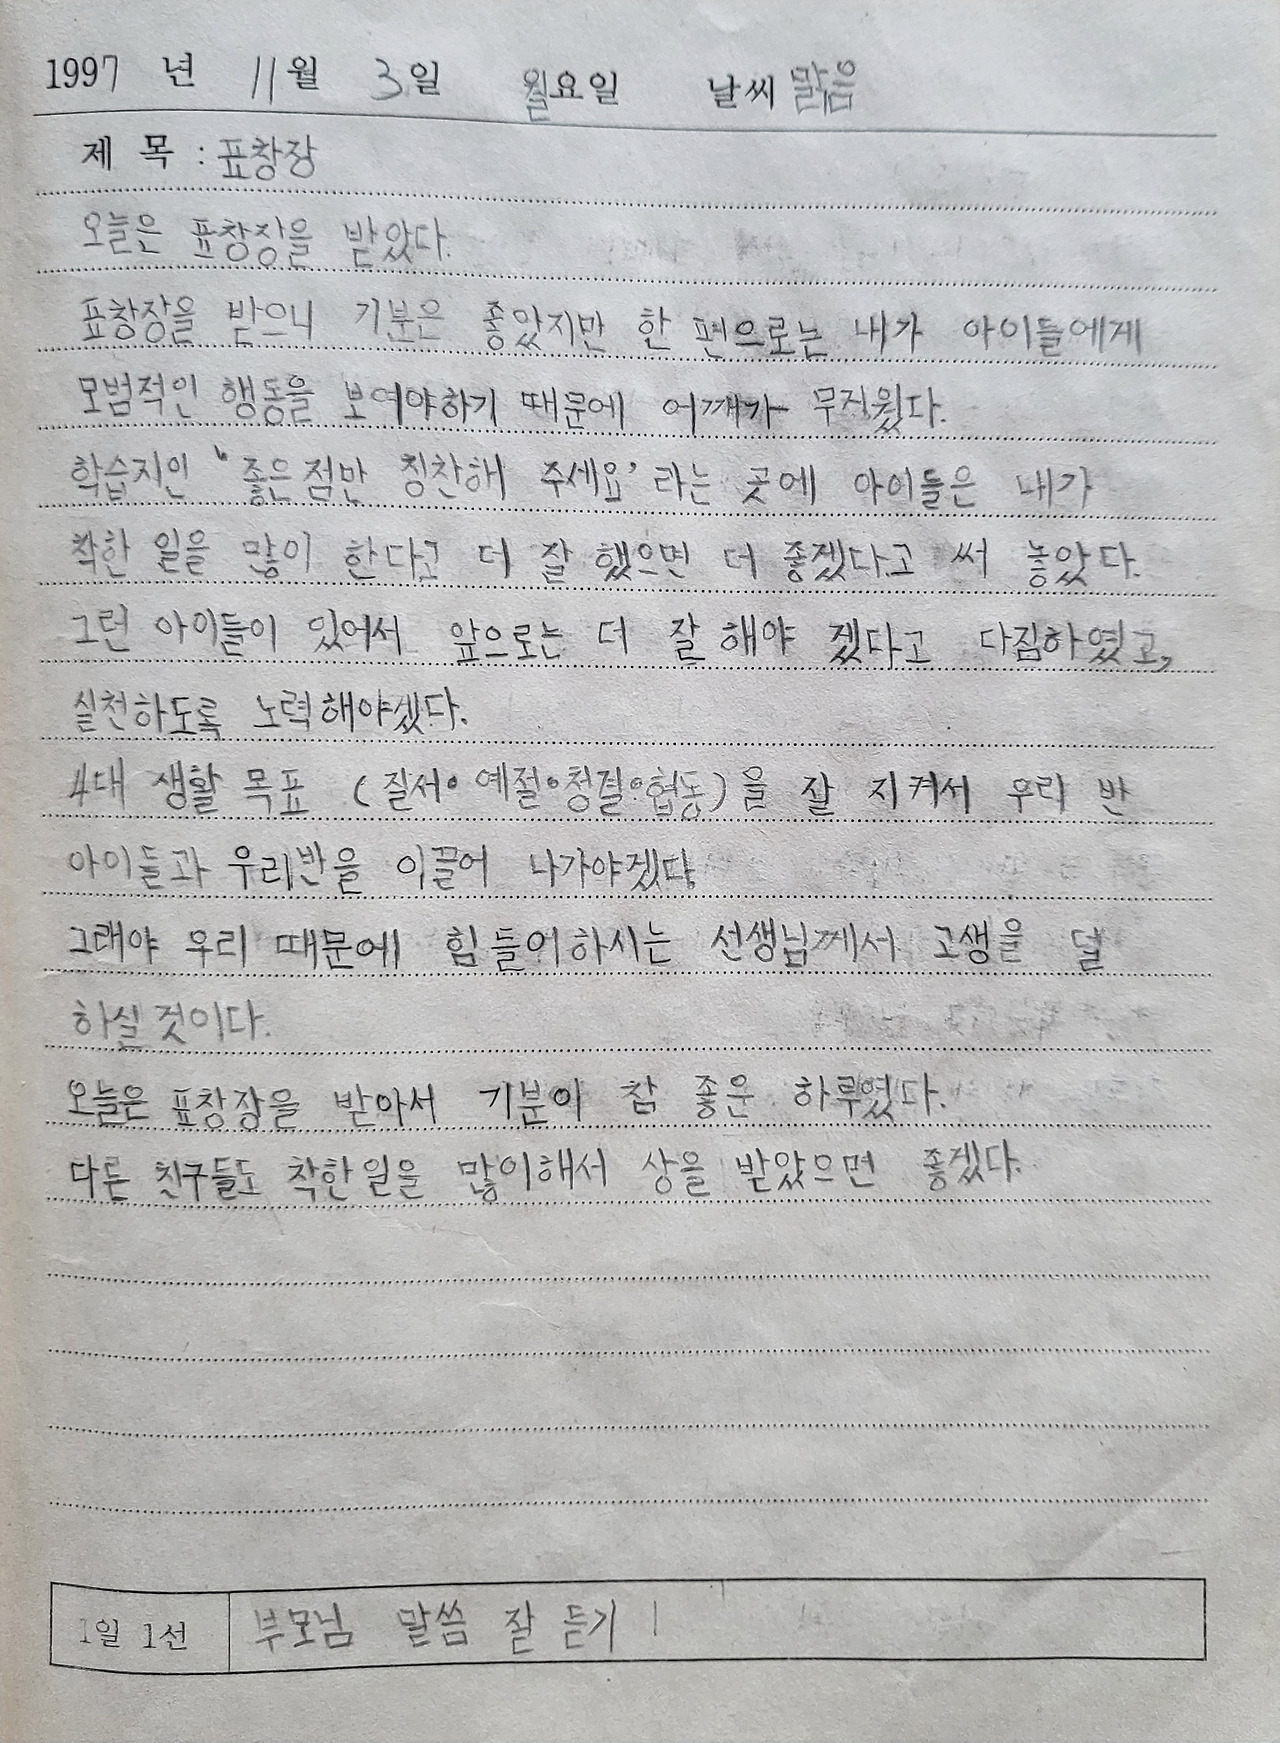 1997 년 11월 3일 월요일 날씨 맑음
제 목 : 표창장
오늘은 표창장을 받았다.
표창장을 받으니 기분은 좋았지만 한 편으로는 내가 아이들에게
모범적인 행동을 보여야하기 때문에 어깨가 무거웠다.
학습지인 "좋은점만 칭찬해 주세요' 라는 곳에 아이들은 내가
착한 일을 많이 한다고 더 잘 했으면 더 좋겠다고 써 놓았다.
그런 아이들이 있어서 앞으로는 더 잘 해야 겠다고 다짐하였고,
실천하도록 노력해야겠다.
4대 생활 목표 (질서·예절·청결·협동)을 잘 지켜서 우리 반
아이들과 우리반을 이끌어 나가야겠다.
그래야 우리 때문에 힘들어하시는 선생님께서 고생을 덜
하실 것이다.
오늘은 표창장을 받아서 기분이 참 좋은 하루였다.
다른 친구들도 착한일을 많이해서 상을 받았으면 좋겠다.
1일 1선 부모님 말씀 잘 듣기